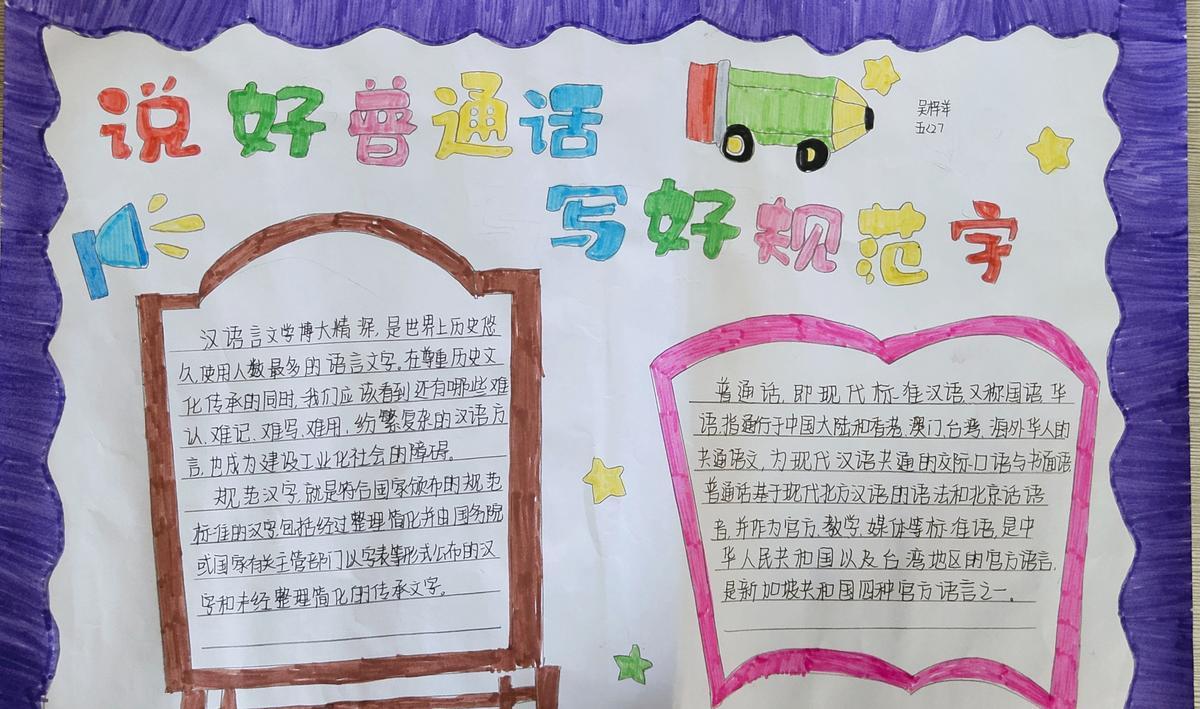 说好普通话
吴梓洋
五<27
写好规范字
汉语言文学博大精深,是世界上历史悠
久,使用人数最多的语言文字。在尊重历史文
化传承的同时,我们应该看到还有哪些难
认、难记、难写、难用,纷繁复杂的汉语方
言,也成为建设工业化社会的障碍。
规范汉字,就是符合国家颁布的规范
标准的汉字,包括经过整理简化并由国务院
或国家有关主管部门以字表等形式公布的汉
字和未经整理简化的传承文字。
普通话,即现代标准汉语,又称国语、华
语,指通行于中国大陆和香港、澳门、台湾、海外华人的
共通语文,为现代汉语共通的交际口语与书面语
普通话基于现代北方汉语的语法和北京话语
音,并作为官方、教学、媒体等标准语,是中
华人民共和国以及台湾地区的官方语言,
是新加坡共和国四种官方语言之一。